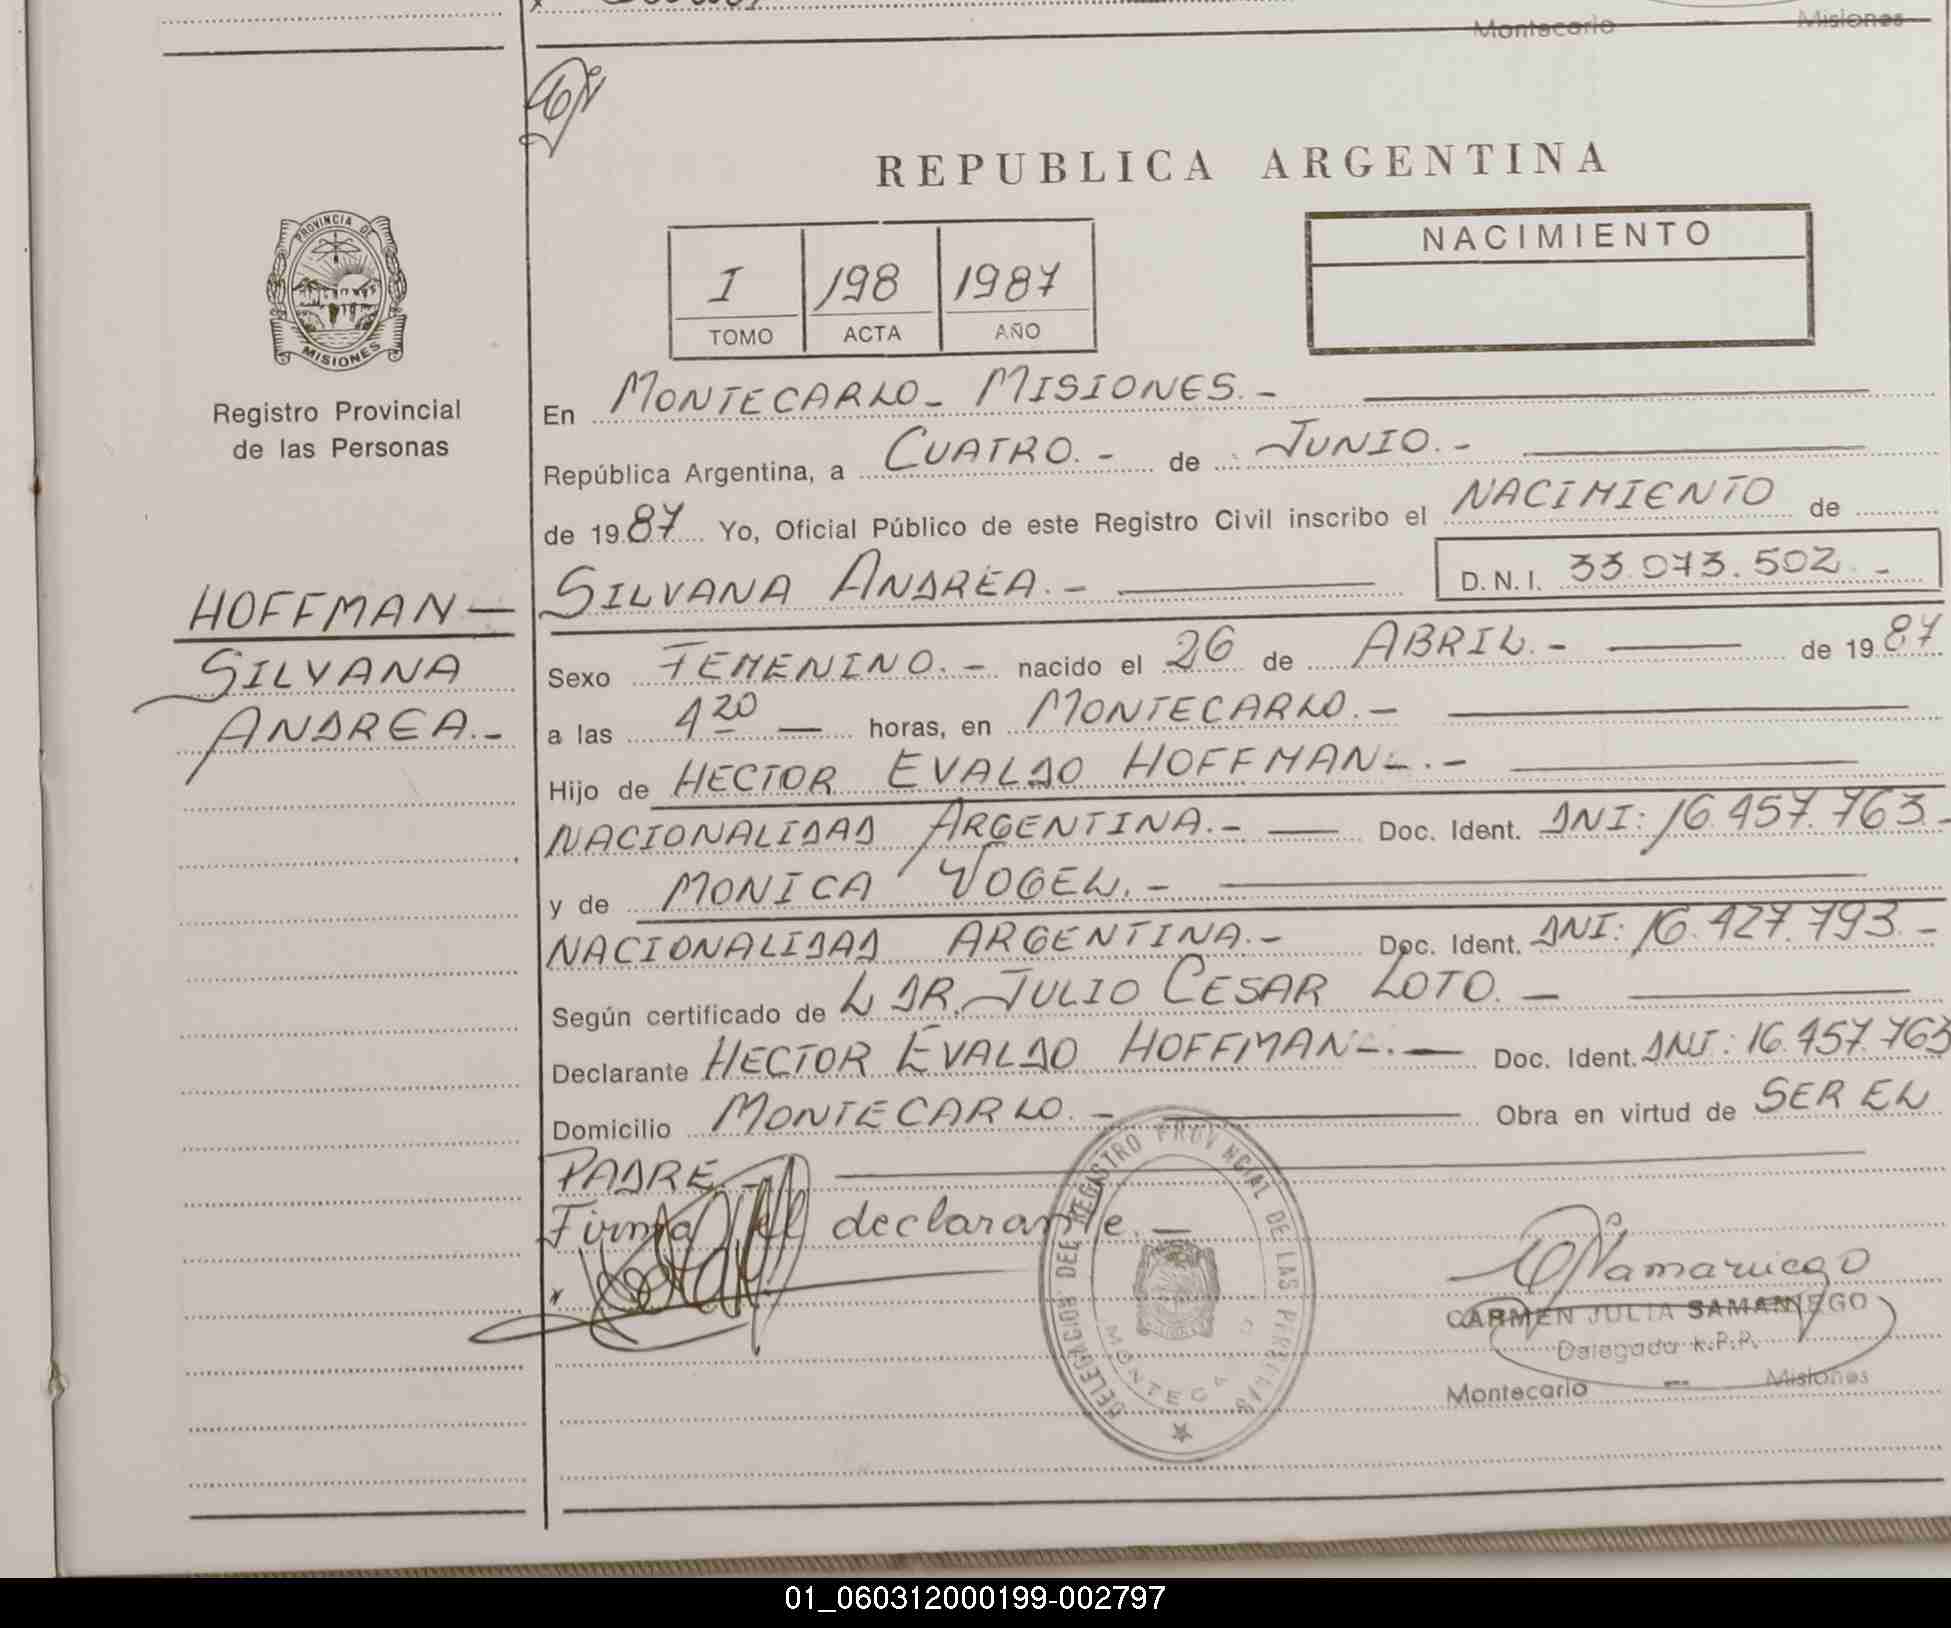 Montecarlo Misiones
REPUBLICA ARGENTINA
PROVINCIA DE
MISIONES
Registro Provincial
de las Personas
I 198 1987
TOMO ACTA AÑO
NACIMIENTO
En MONTECARLO - MISIONES.-
República Argentina, a CUATRO.- de JUNIO.-
de 1987 Yo, Oficial Público de este Registro Civil inscribo el NACIMIENTO de
HOFFMAN —
SILVANA
ANDREA.-
SILVANA ANDREA.- D.N.I. 33.073.502 -
Sexo FEMENINO.- nacido el 26 de ABRIL.- de 1987
a las 4 20 — horas, en MONTECARLO.-
Hijo de HECTOR EVALDO HOFFMAN-.-
NACIONALIDAD ARGENTINA.- Doc. Ident. DNI: 16.457.763-
y de MONICA VOGEL.-
NACIONALIDAD ARGENTINA.- Doc. Ident. DNI: 16.427.793.-
Según certificado de L DR. JULIO CESAR LOTO.-
Declarante HECTOR EVALDO HOFFMAN-.- Doc. Ident. DNI: 16.457.763
Domicilio MONTECARLO.- Obra en virtud de SER EL
PADRE.-
Firma del declarante.-
DELEGACION DEL REGISTRO PROVINCIAL DE LAS PERSONAS
MONTECARLO
CARMEN JULIA SAMANIEGO
Delegada R.P.P.
Montecarlo — Misiones
01_060312000199-002797